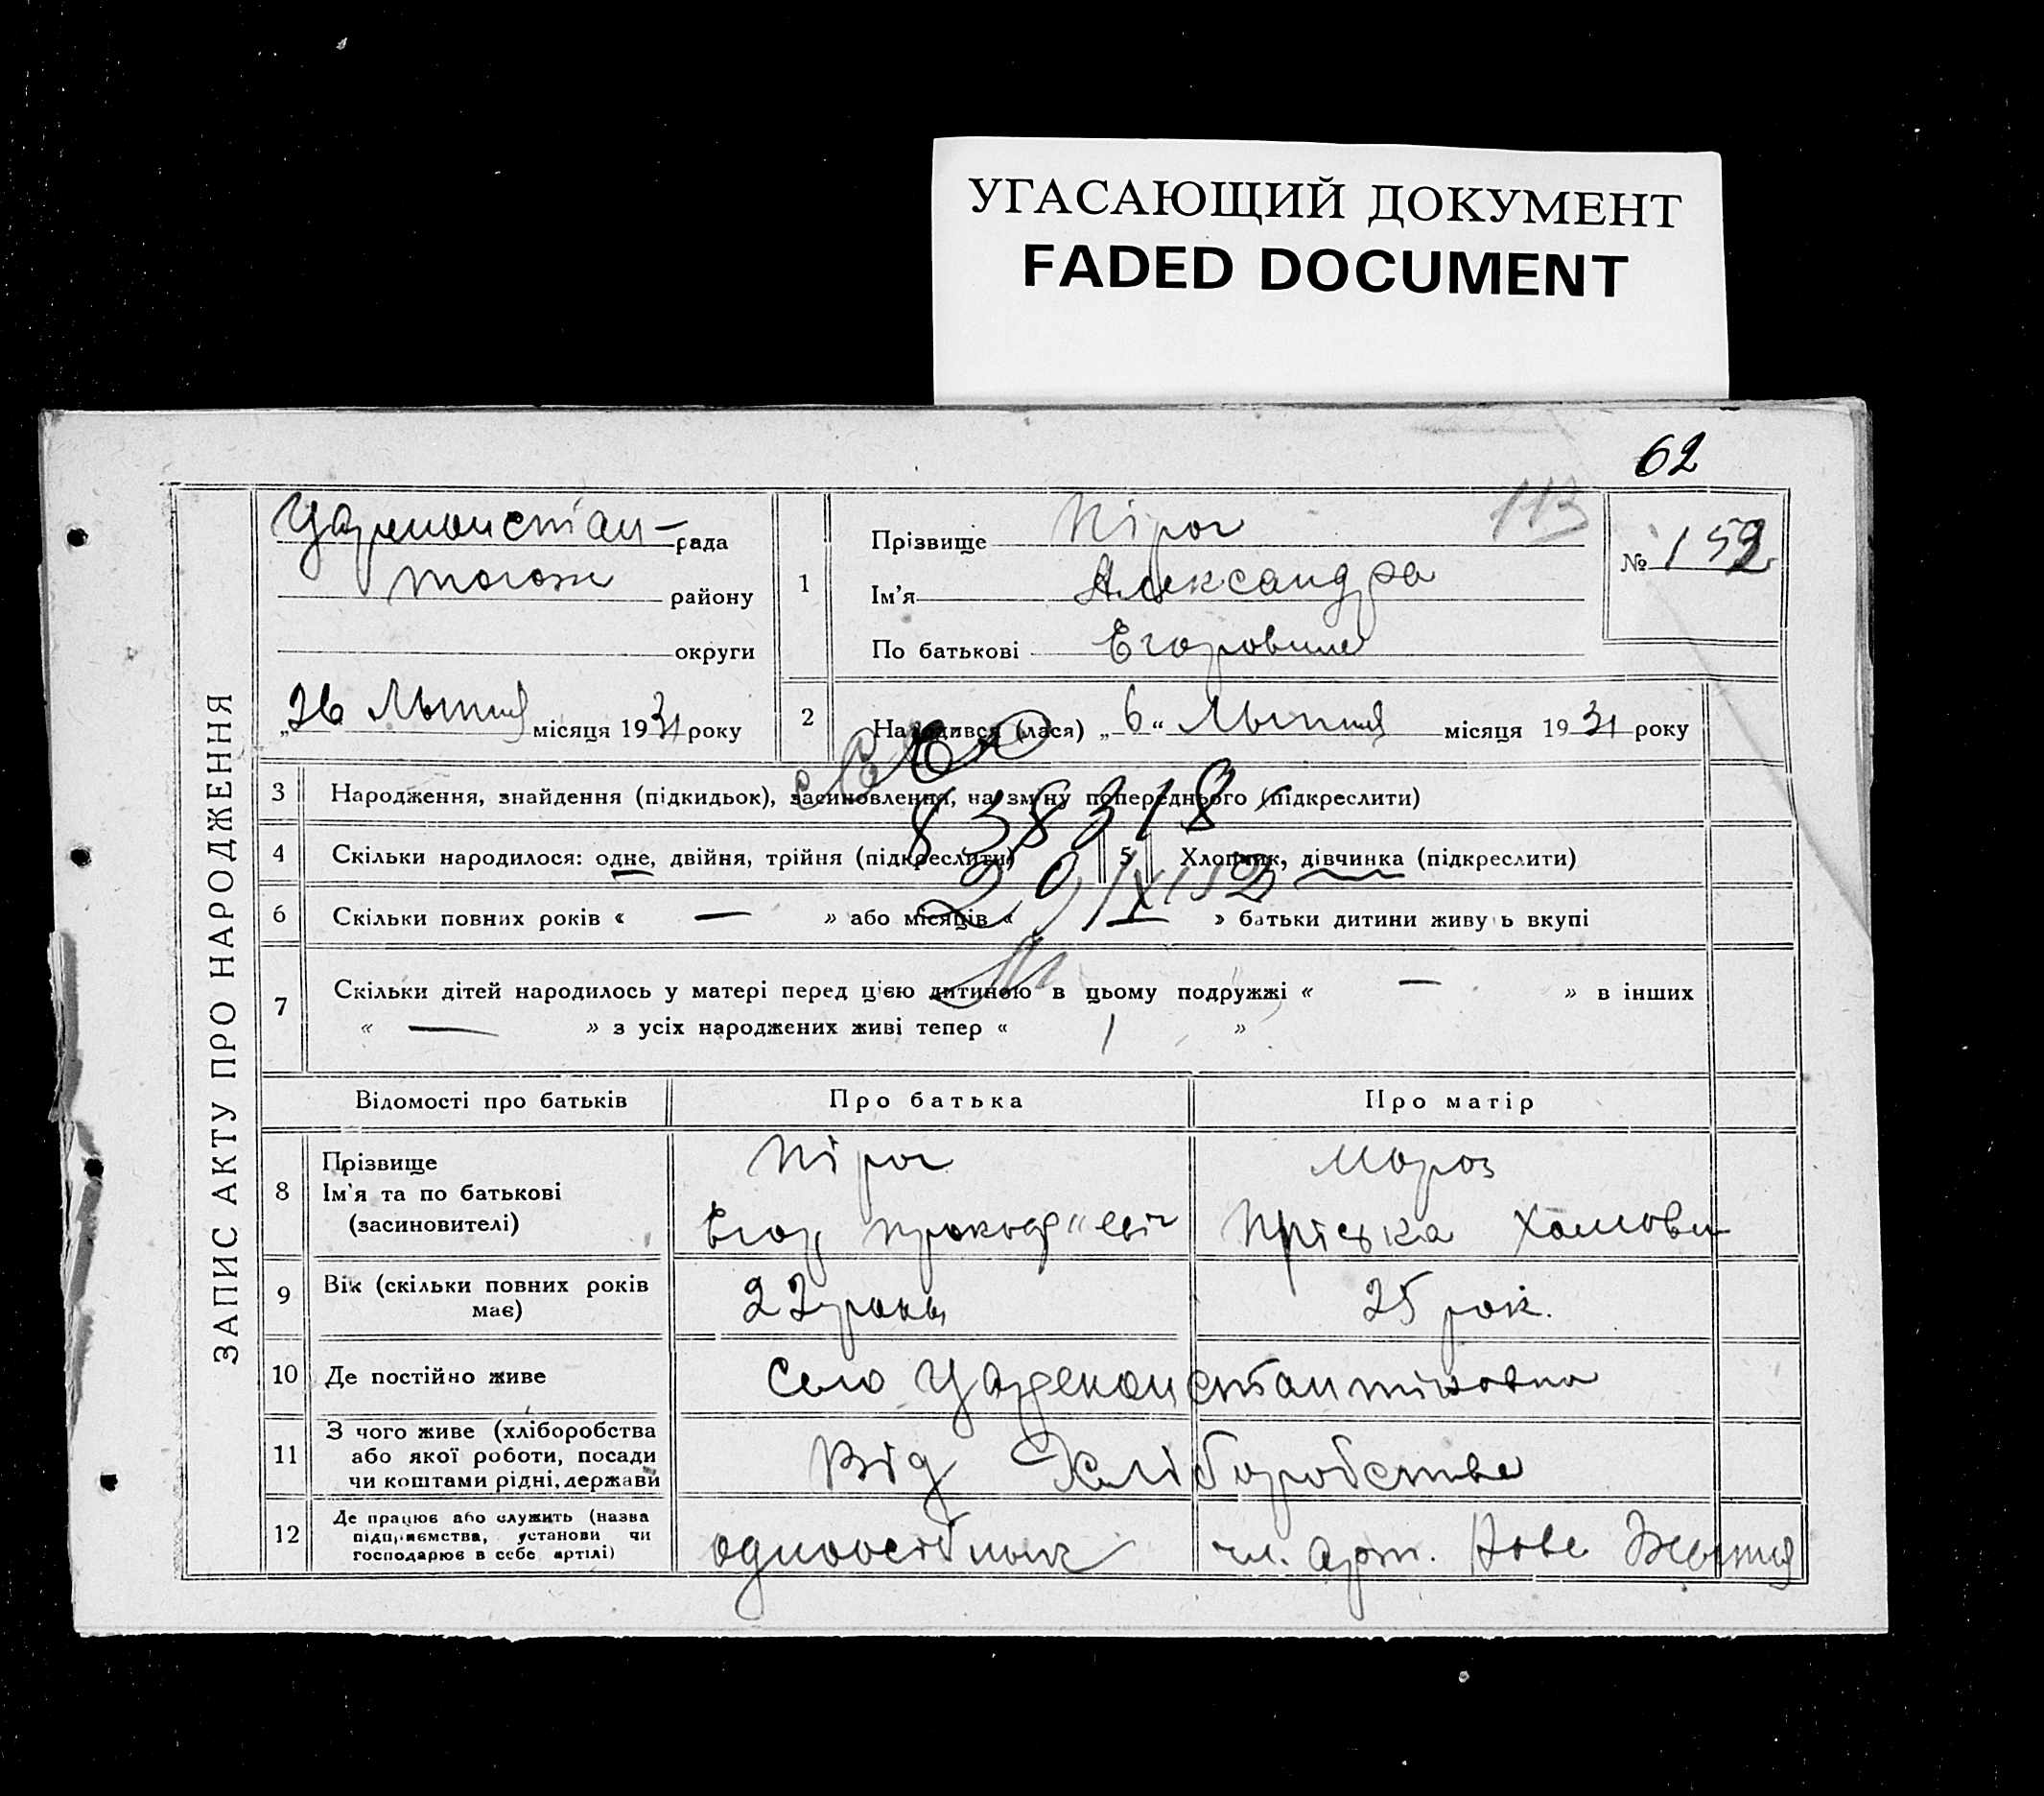 УГАСАЮЩИЙ ДОКУМЕНТ
FADED DOCUMENT
62
ЗАПИС АКТУ ПРО НАРОДЖЕННЯ
Царекостан- рада
району
округи
„26 Лютня місяця 1931 року
1
Прізвище Пірог
113
Ім'я Александра
По батькові Егоровна
№ 159
2
Народився (лася) „6“ Лютня місяця 1931 року
3 Народження, знайдення (підкидьок), засиновлення, на зміну попереднього (підкреслити)
838318
4 Скільки народилося: одне, двійня, трійня (підкреслити)
5 Хлопчик, дівчинка (підкреслити)
29/IX 152
6 Скільки повних років « — » або місяців « » батьки дитини живуть вкупі
7 Скільки дітей народилось у матері перед цією дитиною в цьому подружжі « — » в інших
« — » з усіх народжених живі тепер « 1 »
Відомості про батьків Про батька Про матір
8 Прізвище
Ім'я та по батькові
(засиновителі)
Пірог
Егор
Мороз
Пріська Хомовн
9 Вік (скільки повних років
має)
22 роки
25 рок.
10 Де постійно живе
Село Цареконстантіновка
11 З чого живе (хліборобства
або якої роботи, посади
чи коштами рідні, держави
Від Хліборобства
12 Де працює або служить (назва
підприємства, установи чи
господарює в себе артілі)
одноосібник
чл. арт. Нове Життя